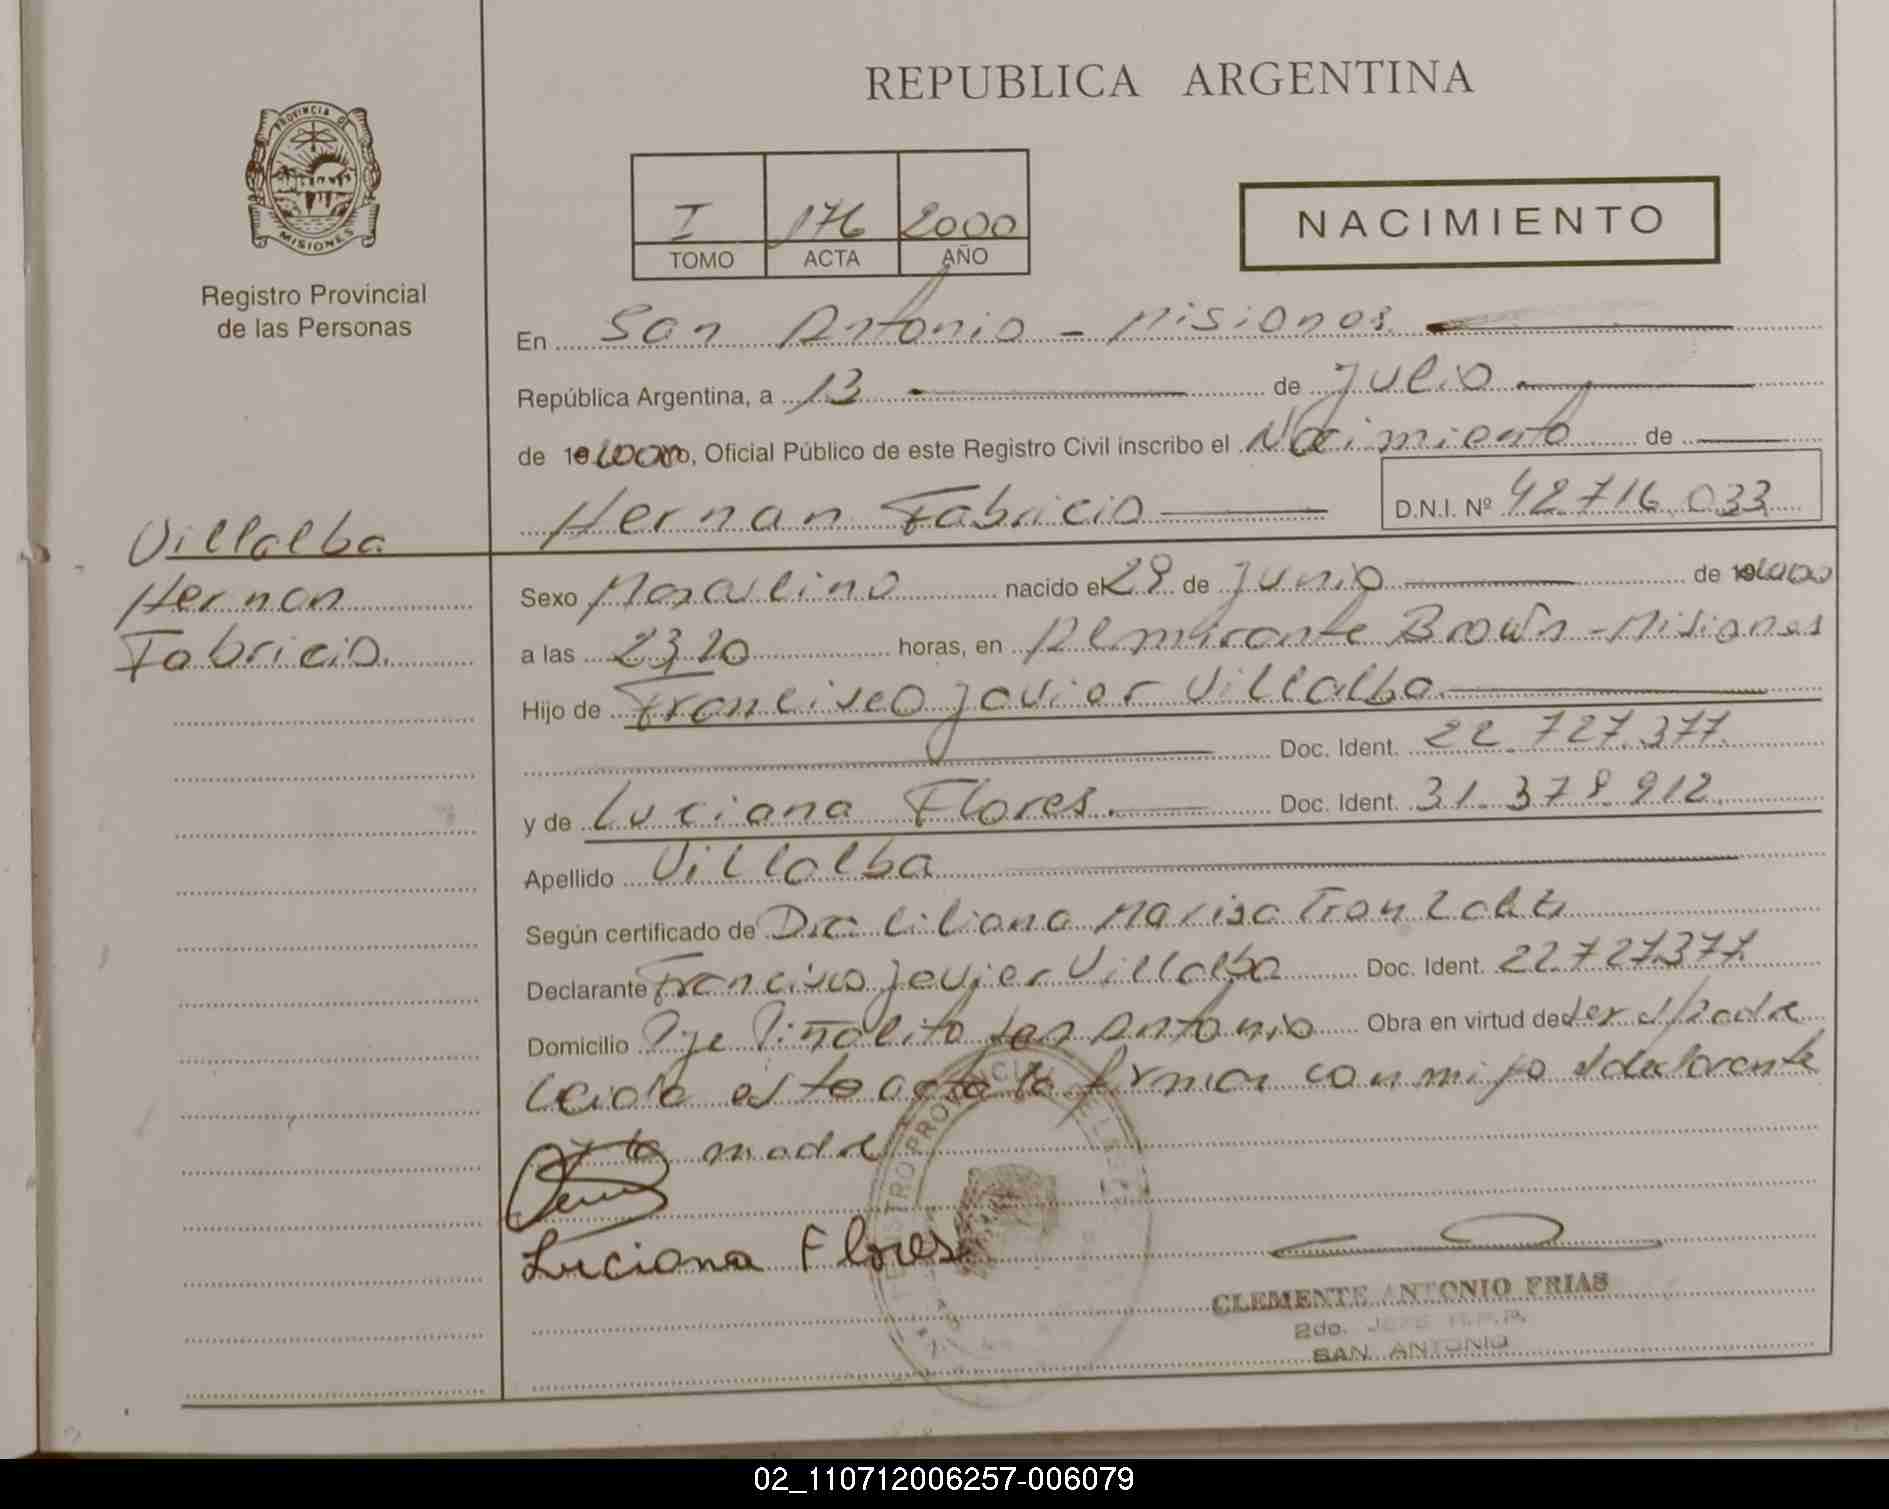 REPUBLICA ARGENTINA
PROVINCIA DE
MISIONES
Registro Provincial
de las Personas
I 176 2000
TOMO ACTA AÑO
NACIMIENTO
En San Antonio - Misiones
República Argentina, a 13 de Julio
de 2000, Oficial Público de este Registro Civil inscribo el Nacimiento de
Hernan Fabricio D.N.I. Nº 42.716.033
Villalba
Hernan
Fabricio.
Sexo Masculino nacido el 28 de Junio de 2000
a las 23,20 horas, en Almirante Brown - Misiones
Hijo de Francisco Javier Villalba
Doc. Ident. 22.727.377
y de Luciana Flores. Doc. Ident. 31.378.912
Apellido Villalba
Según certificado de Dra Liliana Marisa
Declarante Francisco Javier Villalba Doc. Ident. 22.727.377
Domicilio Pje Piñalito San Antonio Obra en virtud de ser el Padre
Leida esta acta la firman conmigo el declarante
y la madre
Luciana Flores
CLEMENTE ANTONIO FRIAS
2do. JEFE R.P.P.
SAN ANTONIO
02_110712006257-006079